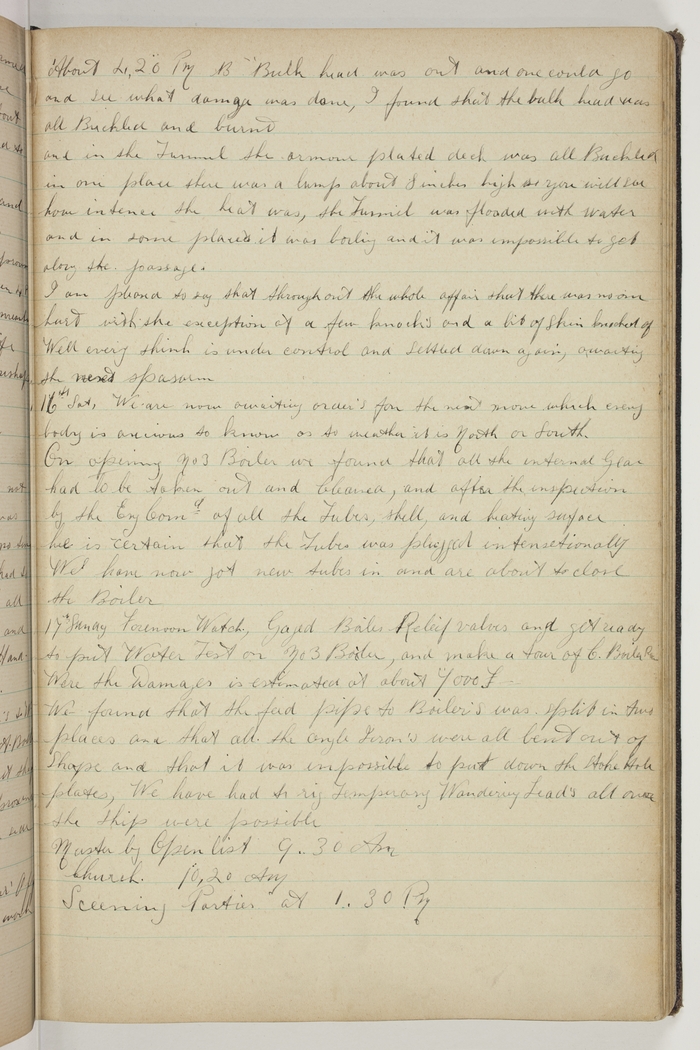 About 4,20 PM B "Bulk head was out and one could go
and see what damage was done, I found that the bulk head was
all Buckled and burnt
and in the Tunnel the armour plated deck was all Buckled
in one place there was a lump about 8 inches high so you will see
how intense the heat was, the Tunnel was flooded with water
and in some places it was boiling and it was impossible to get
along the passage.
I am to say that throughout the whole affair that there was no one
hurt with the exception of a few knocks and a bit of skin knocked of
Well every think is under control and settled down again, awaiting
the next spasam
16th Sat, We are now awaiting order's for the next move which every
body is anxious to know as to weather it is North or South
On opening No 3 Boiler we found that all the internal Gear
had to be taken out and Cleaned, and after the inspection
by the Eng Comd of all the Tubes, shell, and heating surface
he is certain that the Tubes was plugged intensetionally
We have now got new tubes in and are about to close
the Boiler
17th Sunday Forenoon Watch, Gaged Boiler Releif valves and get ready
to put Water Test on No 3 Boiler, and make a tour of C. Boiler
Were the Damages is estimated at about 7000£
We found that the fed pipe to Boiler's was split in two
places and that all the angle Iron's were all bent out of
Shape and that it was impossible to put down the Stoke Hole
plates, We have had to rig Temperary Wandering Lead's all over
the ship were possible
Muster by Open list 9.30 Am
Church. 10,20 Am
Sceening Parties at 1.30 PM